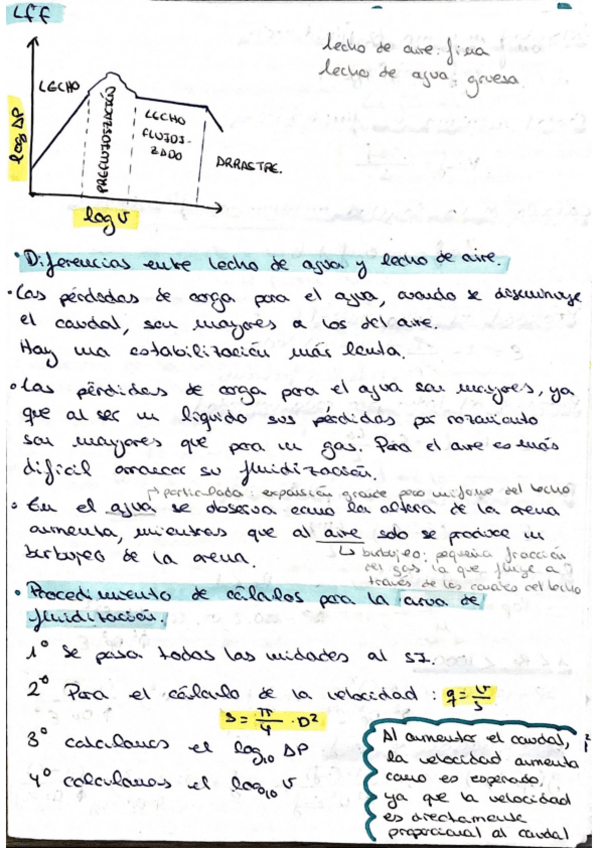 Lff
lecho de aire: fina
lecho de agua: gruesa
log ΔP
LECHO
PREFLUIDIZACIÓN
LECHO
FLUIDI-
ZADO
ARRASTRE.
log v
· Diferencias entre lecho de agua y lecho de aire.
· Las pérdidas de carga para el agua, cuando se disminuye
el caudal, son mayores a las del aire.
Hay una estabilización más lenta.
· Las pérdidas de carga para el agua son mayores, ya
que al ser un líquido sus pérdidas por rozamiento
son mayores que para un gas. Para el aire es más
difícil arrancar su fluidización.
↱ particulada: expansión grande pero uniforme del lecho
· En el agua se observa como la altura de la arena
aumenta, mientras que al aire solo se produce un
burbujeo de la arena.
↳ burbujeo: pequeña fracción
del gas la que fluye a
través de los canales del lecho
· Procedimiento de cálculos para la curva de
fluidización.
1º Se pasa todas las unidades al SI.
2º Para el cálculo de la velocidad: q = v/s
s = π/4 · D²
3º calculamos el log₁₀ ΔP
4º calculamos el log₁₀ v
Al aumentar el caudal,
la velocidad aumenta
como es esperado,
ya que la velocidad
es directamente
proporcional al caudal